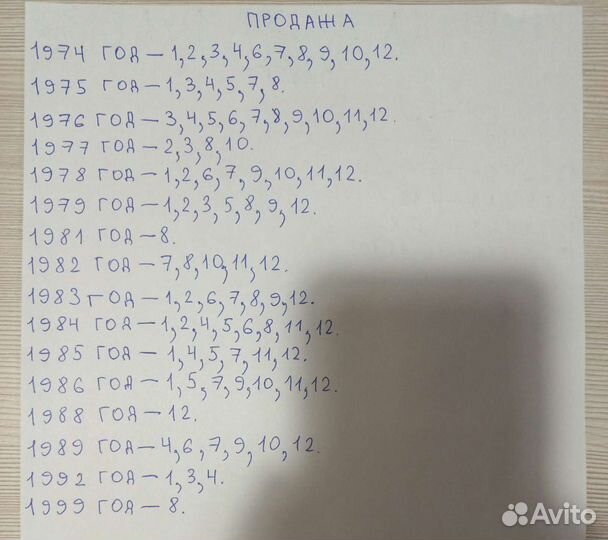 ПРОДАЖА
1974 ГОД — 1,2,3,4,6,7,8,9,10,12.
1975 ГОД — 1,3,4,5,7,8.
1976 ГОД — 3,4,5,6,7,8,9,10,11,12.
1977 ГОД — 2,3,8,10.
1978 ГОД — 1,2,6,7,9,10,11,12.
1979 ГОД — 1,2,3,5,8,9,12.
1981 ГОД — 8.
1982 ГОД — 7,8,10,11,12.
1983 ГОД — 1,2,6,7,8,9,12.
1984 ГОД — 1,2,4,5,6,8,11,12.
1985 ГОД — 1,4,5,7,11,12.
1986 ГОД — 1,5,7,9,10,11,12.
1988 ГОД — 12.
1989 ГОД — 4,6,7,9,10,12.
1992 ГОД — 1,3,4.
1999 ГОД — 8.
Avito